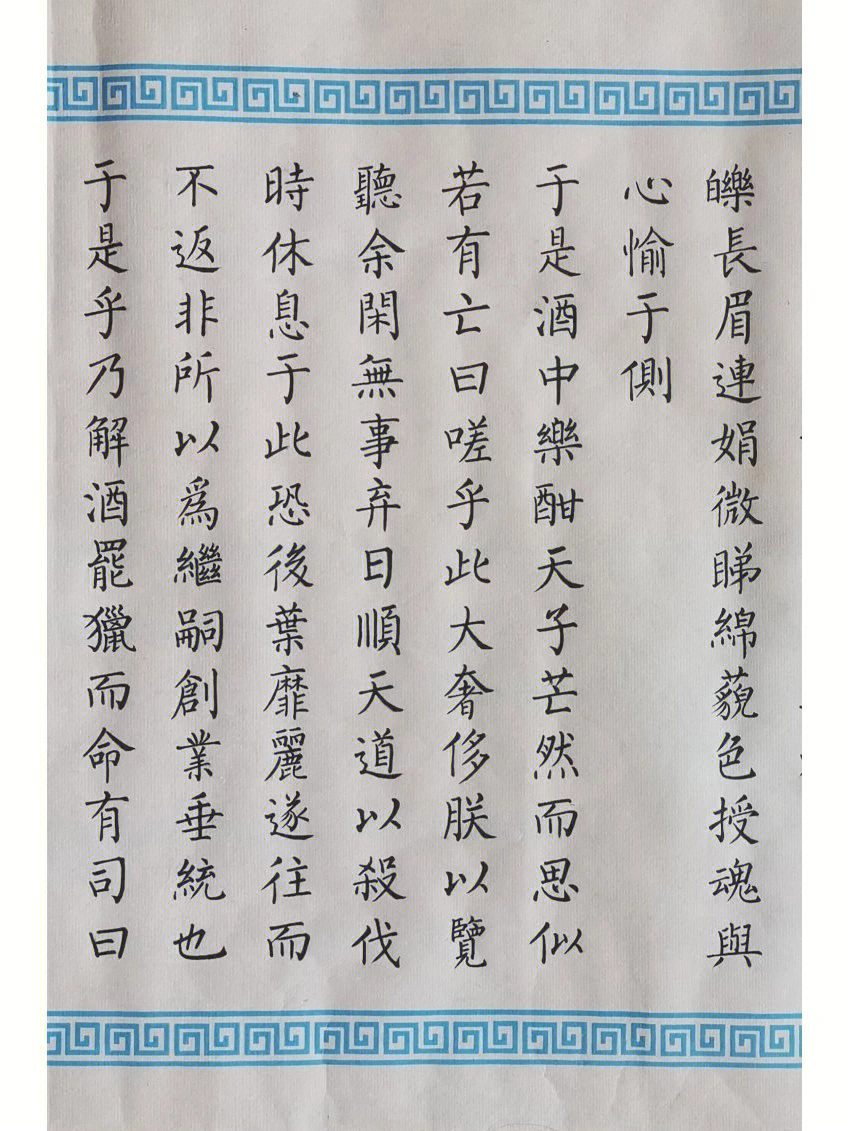 皪長眉連娟微睇綿藐色授魂與
心愉于側
于是酒中樂酣天子芒然而思似
若有亡曰嗟乎此大奢侈朕以覽
聽余閑無事弃日順天道以殺伐
時休息于此恐後葉靡麗遂往而
不返非所以爲繼嗣創業垂統也
于是乎乃解酒罷獵而命有司曰